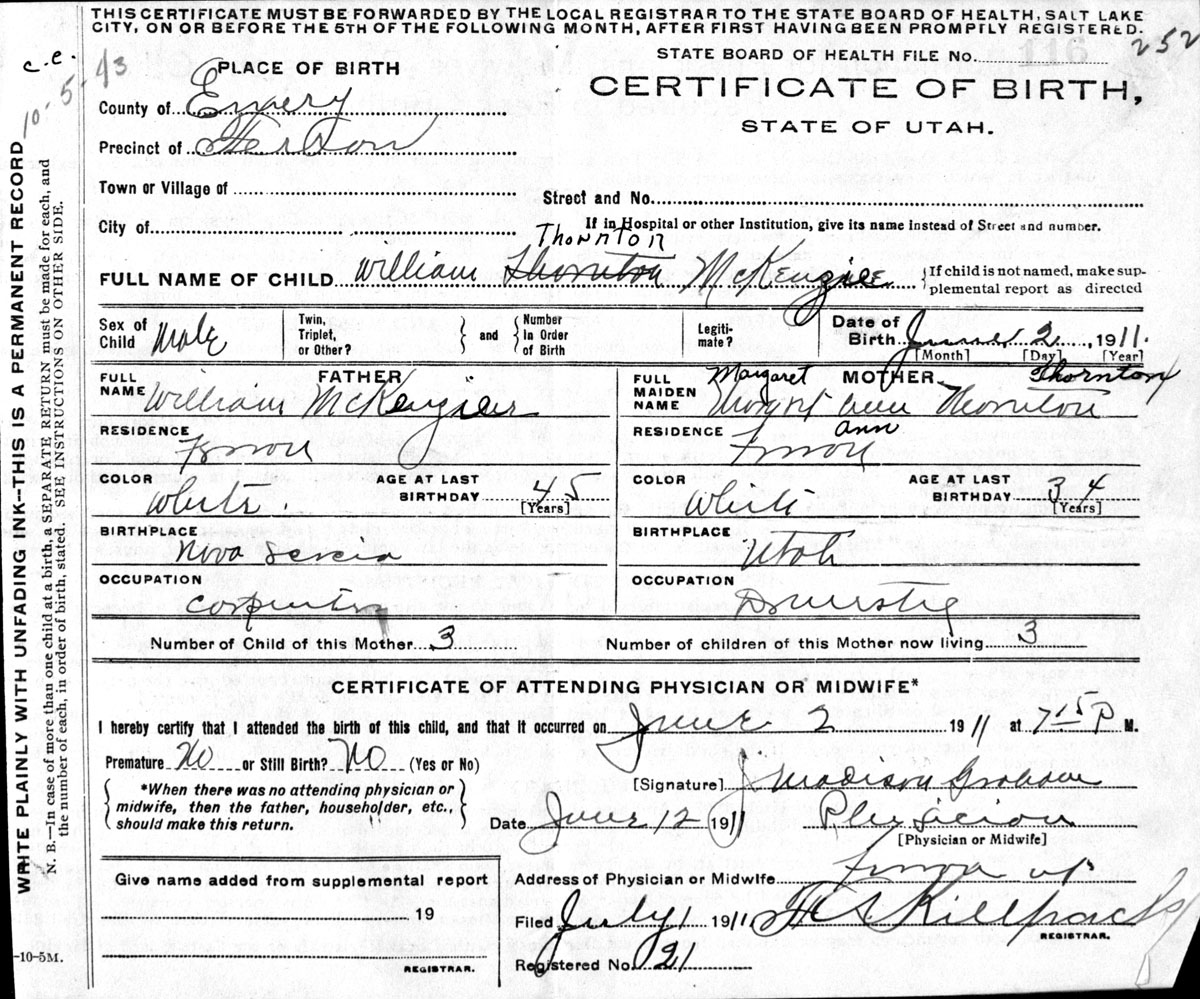 THIS CERTIFICATE MUST BE FORWARDED BY THE LOCAL REGISTRAR TO THE STATE BOARD OF HEALTH, SALT LAKE
CITY, ON OR BEFORE THE 5TH OF THE FOLLOWING MONTH, AFTER FIRST HAVING BEEN PROMPTLY REGISTERED.
STATE BOARD OF HEALTH FILE No. 116 252
c.c. 10-5-43
PLACE OF BIRTH
CERTIFICATE OF BIRTH,
STATE OF UTAH.
County of Emery
Precinct of
Town or Village of
Street and No.
City of
If in Hospital or other Institution, give its name instead of Street and number.
Thornton
FULL NAME OF CHILD William Thornton McKenzie
If child is not named, make sup-
plemental report as directed
Sex of Child Male
Twin, Triplet, or Other?
and
Number In Order of Birth
Legiti-mate?
Date of Birth June 2, 1911.
[Month] [Day] [Year]
FATHER
FULL NAME William McKenzie
RESIDENCE
COLOR White.
AGE AT LAST BIRTHDAY 45
[Years]
BIRTHPLACE Nova Scocia
OCCUPATION Carpenter
MOTHER
Margaret Thornton
FULL MAIDEN NAME Ann Thornton
RESIDENCE ann
COLOR White
AGE AT LAST BIRTHDAY 34
[Years]
BIRTHPLACE Utah
OCCUPATION Domestic
Number of Child of this Mother 3
Number of children of this Mother now living 3
CERTIFICATE OF ATTENDING PHYSICIAN OR MIDWIFE*
I hereby certify that I attended the birth of this child, and that it occurred on June 2 1911 at 7 15 P M.
Premature No or Still Birth? No (Yes or No)
*When there was no attending physician or
midwife, then the father, householder, etc.,
should make this return.
[Signature] J Madison Graham
Date June 12 1911
Physician
[Physician or Midwife]
Address of Physician or Midwife
Give name added from supplemental report
19
REGISTRAR.
Filed July 1911 Killpack
REGISTRAR.
Registered No. 21
-10-5M.
WRITE PLAINLY WITH UNFADING INK--THIS IS A PERMANENT RECORD
N. B.—In case of more than one child at a birth, a SEPARATE RETURN must be made for each, and
the number of each, in order of birth, stated. SEE INSTRUCTIONS ON OTHER SIDE.